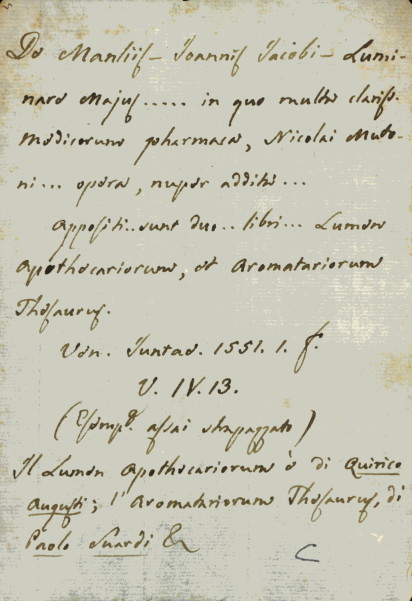 De Manliis – Joannis Jacobi – Lumi-
nare Majus ..... in quo multa clariss.
medicorum pharmaca, Nicolai Muto-
ni ... opera, nuper addita ...
Appositi .. sunt duo .. libri ... Lumen
Apothecariorum, et Aromatariorum
Thesaurus.
Ven. Juntas. 1551. 1. f.
V. IV. 13.
(Esemp.e assai strapazzato)
Il Lumen Apothecariorum è di Quirico
Augusti; l'Aromatariorum Thesaurus, di
Paolo Suardi &
C